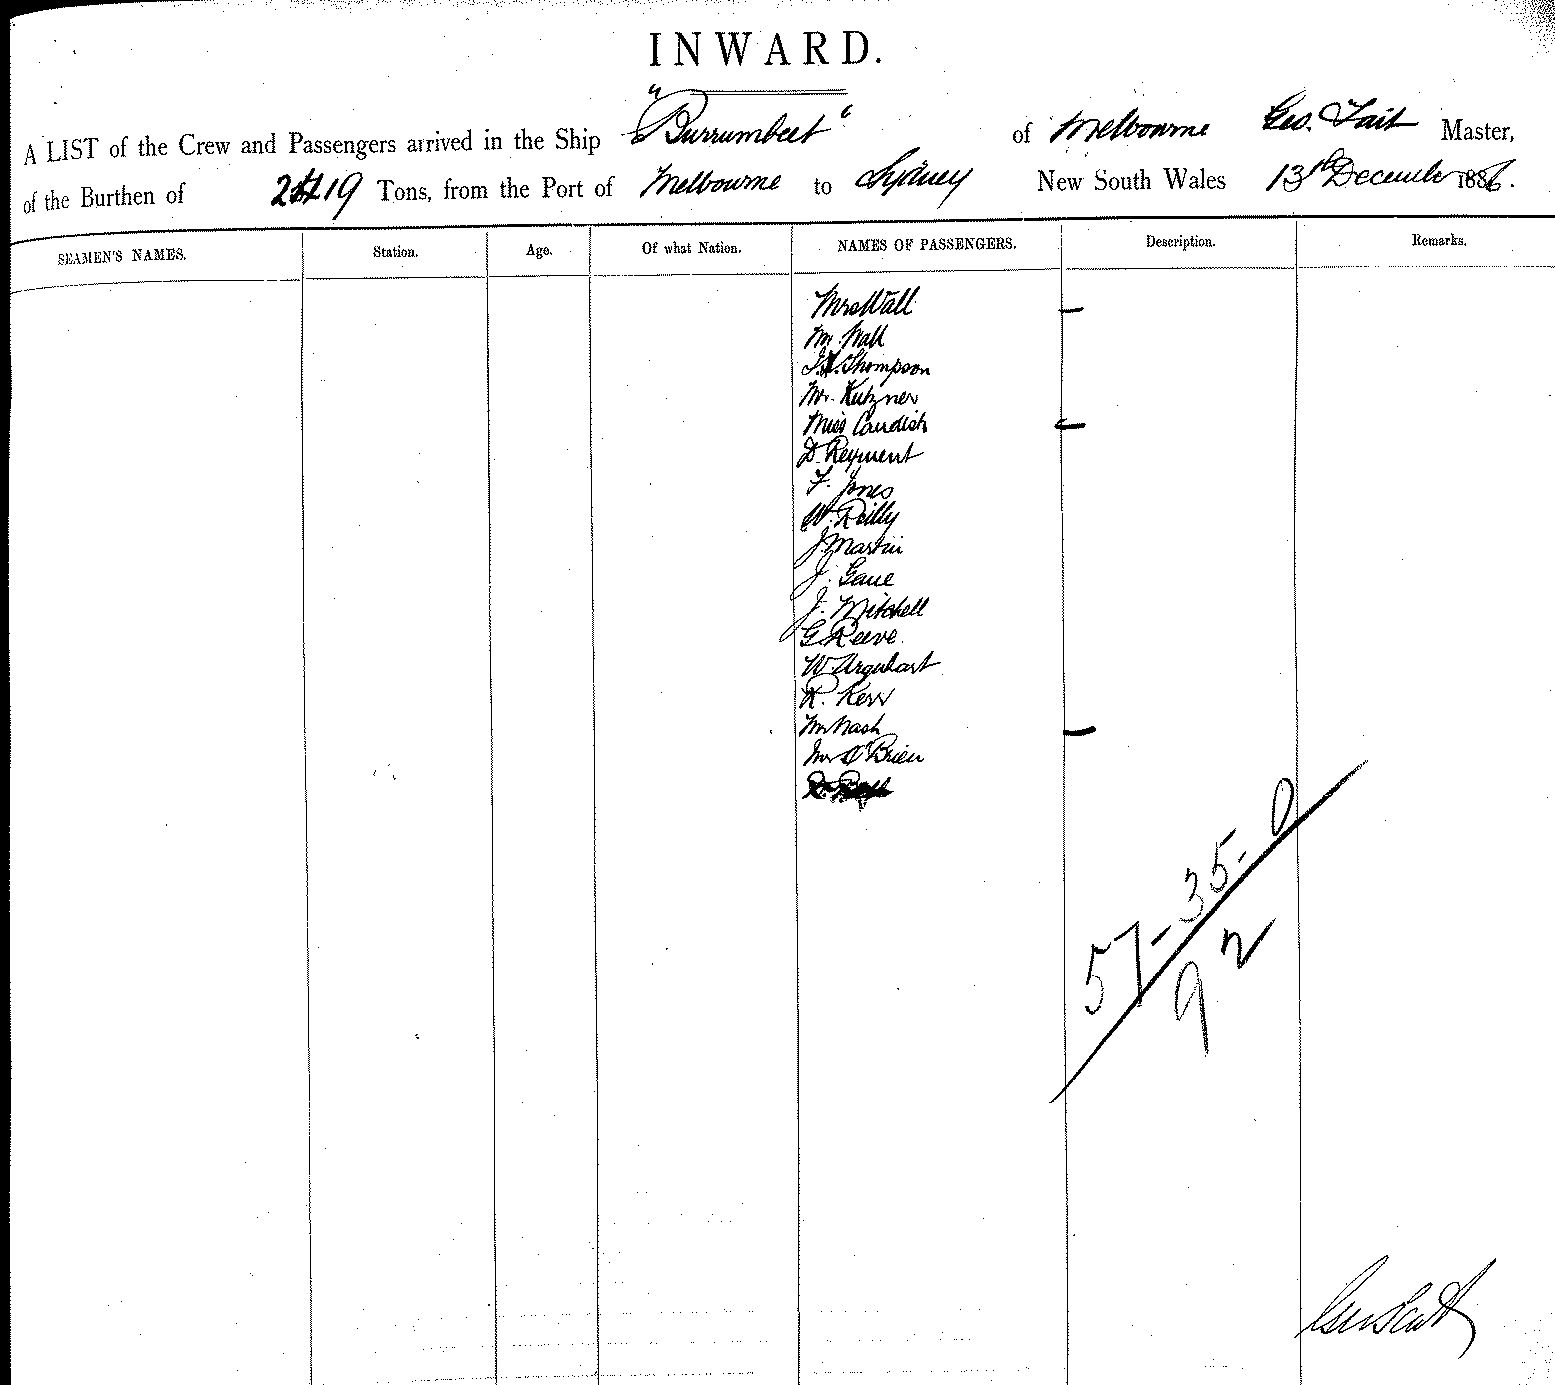 INWARD.
A LIST of the Crew and Passengers arrived in the Ship "Burrumbeet" of Melbourne Geo. Tait Master,
of the Burthen of 2419 Tons, from the Port of Melbourne to Sydney New South Wales 13th December 1886.
SEAMEN'S NAMES. Station. Age. Of what Nation. NAMES OF PASSENGERS. Description. Remarks.
Mrs Wall
Mr. Wall
Thompson
Mr. Kutzner
Miss Candish
D. Reyment
F. Jones
W. Reilly
J. Martin
J. Gane
J. Mitchell
G Reeve
W. Urquhart
R. Kerr
Nash
O'Brien
57-35-0
92
Geo Tait